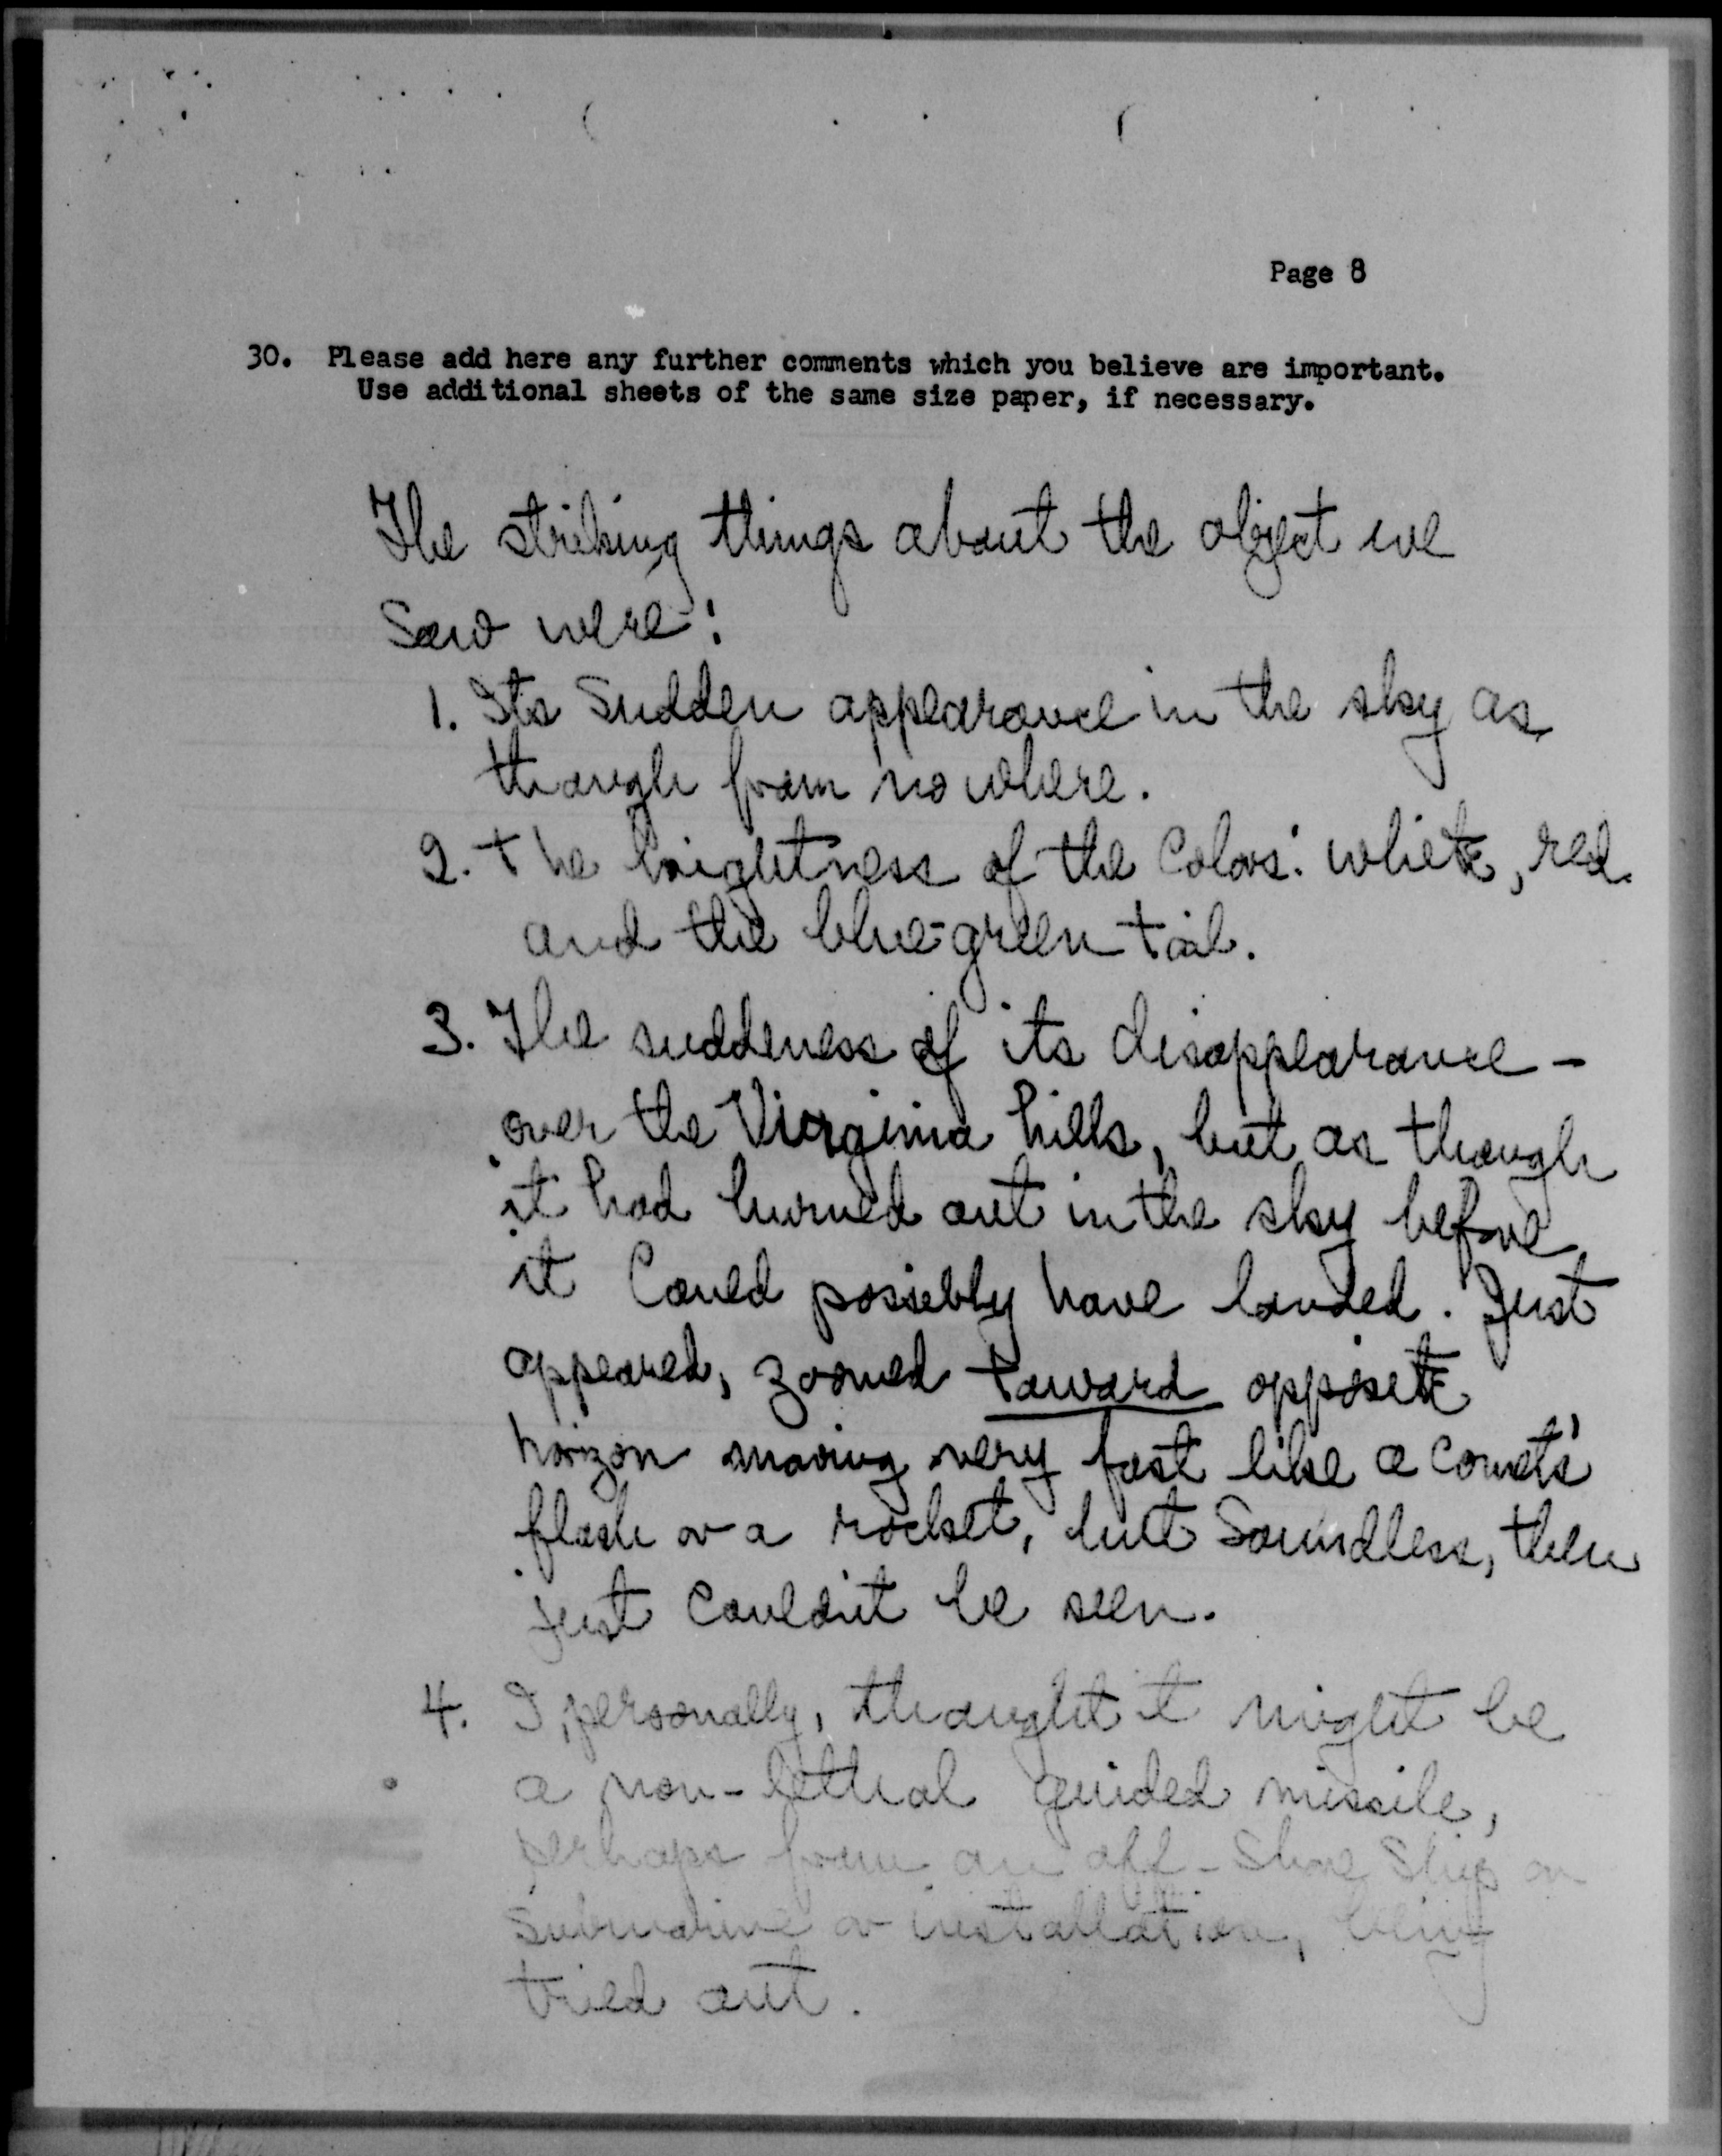 Page 8
30. Please add here any further comments which you believe are important.
Use additional sheets of the same size paper, if necessary.
The striking things about the object we
saw were:
1. Its sudden appearance in the sky as
though from nowhere.
2. The brightness of the colors: white, red
and the blue-green tail.
3. The suddeness of its disappearance -
over the Virginia hills, but as though
it had burned out in the sky before
it could possibly have landed. Just
appeared, zoomed toward opposite
horizon moving very fast like a comet's
flash or a rocket, but soundless, then
just couldn't be seen.
4. I, personally, thought it might be
a non-lethal guided missile,
perhaps from an off-shore ship or
submarine or installation, being
tried out.